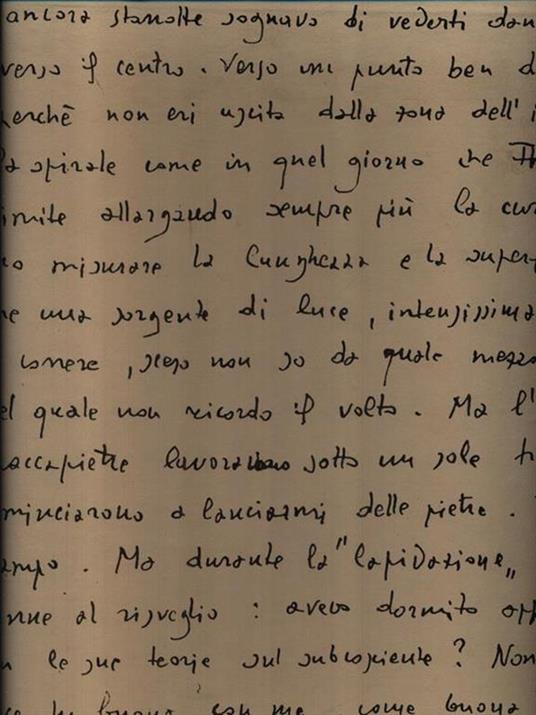 ancora stanotte sognavo di vederti dan
verso il centro. Verso un punto ben d
perchè non eri uscita dalla zona dell' i
la spirale come in quel giorno che
imite allargando sempre più la cur
ro misurare la lunghezza e la super
re una sorgente di luce, intensissima
correre, sceso non so da quale mezzo
el quale non ricordo il volto. Ma l'
accapietre lavoravano sotto un sole t
minciarono a lanciarmi delle pietre.
ampo. Ma durante la "lapidazione"
nne al risveglio: avevo dormito opp
n le sue teorie sul subcosciente? Non
buona con me come buona